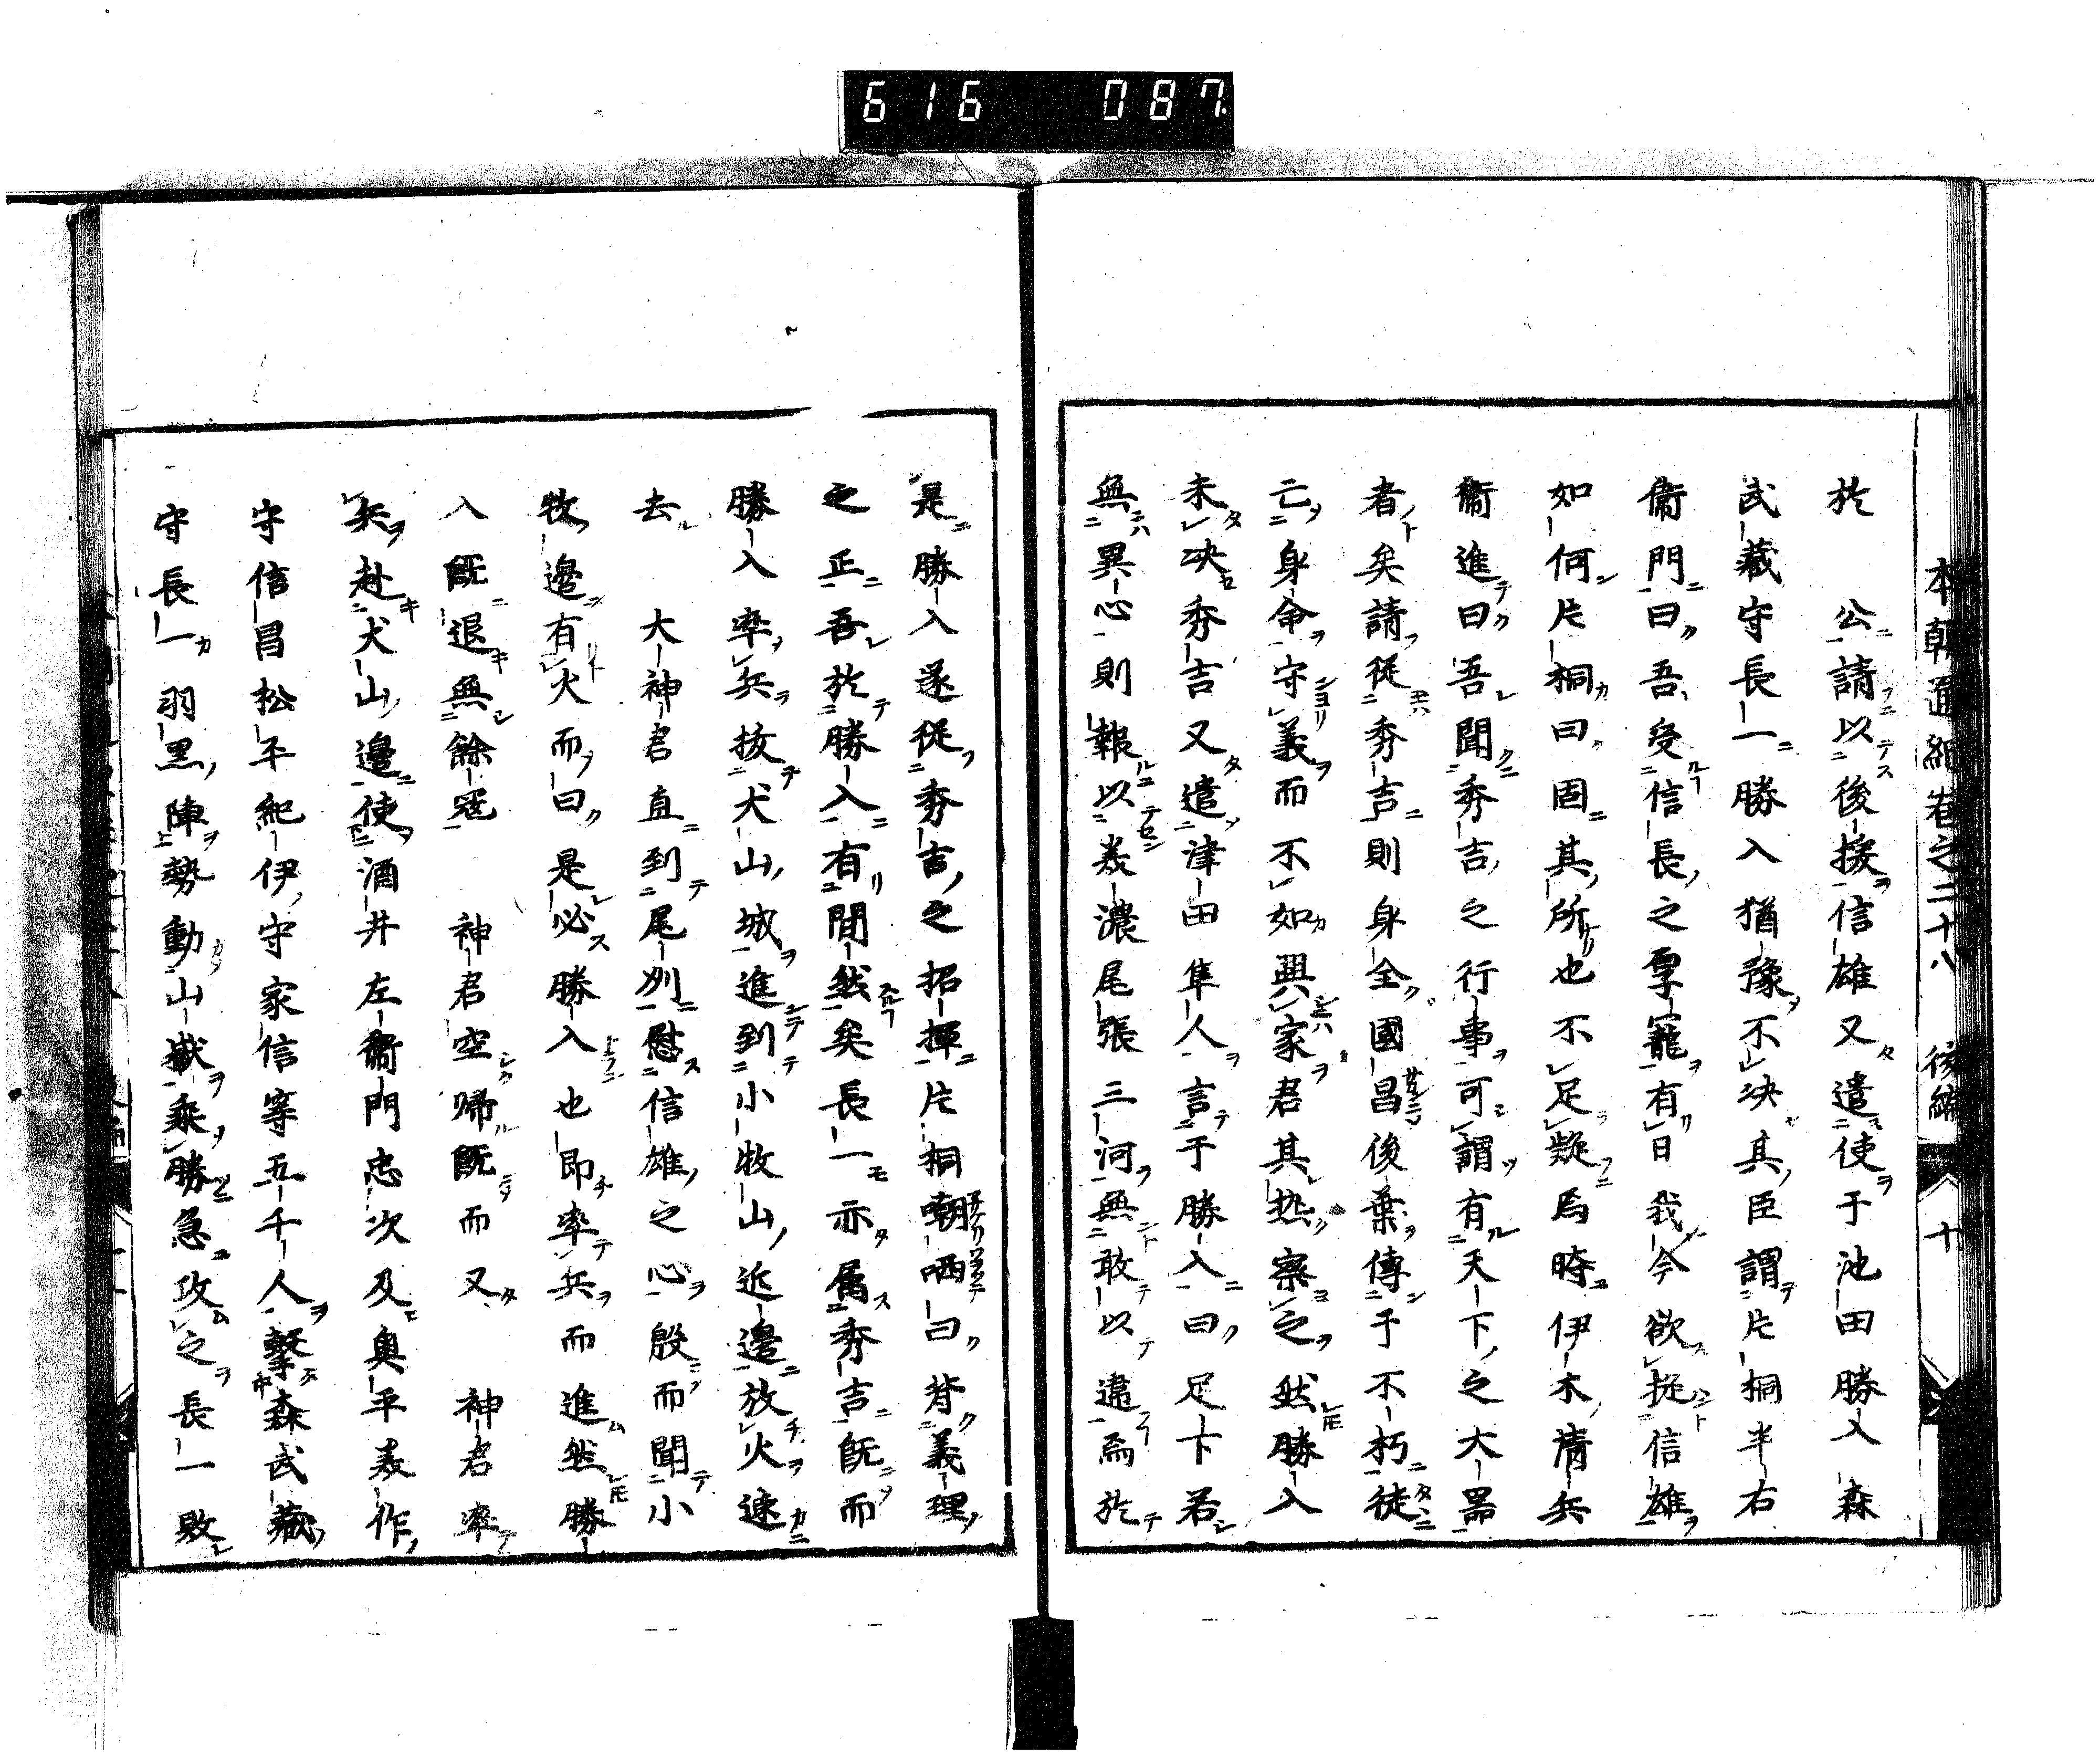 616 087
本朝通紀巻之二十八 後編 十
於 公請以後援信雄又遣使于池田勝入森
武藏守長一勝入猶豫不决其臣謂片桐半右
衞門曰吾受信長之厚寵有日我今欲挺信雄
如何片桐曰固其所也不足疑焉時伊木清兵
衞進曰吾聞秀吉之行事可謂有天下之大器
者矣請從秀吉則身全國昌後葉傳于不朽徒
亡身命守義而不如興家君其熟察之然勝入
未决秀吉又遣津田隼人言于勝入曰足下若
無異心則報以美濃尾張三河無敢以違焉於
是勝入遂從秀吉之招揮片桐嘲哂曰背義理
之正吾於勝入有間然矣長一亦属秀吉既而
勝入率兵抜犬山城進到小牧山近邊放火速
去 大神君直到尾刕慰信雄之心殷而聞小
牧邊有火而曰是必勝入也即率兵而進然勝
入既退無餘冦 神君空歸既而又 神君率
兵赴犬山邊使酒井左衞門忠次及奥平美作
守信昌松平紀伊守家信等五千人擊森武藏
守長一羽黒陣勢動山嶽乘勝急攻之長一敗